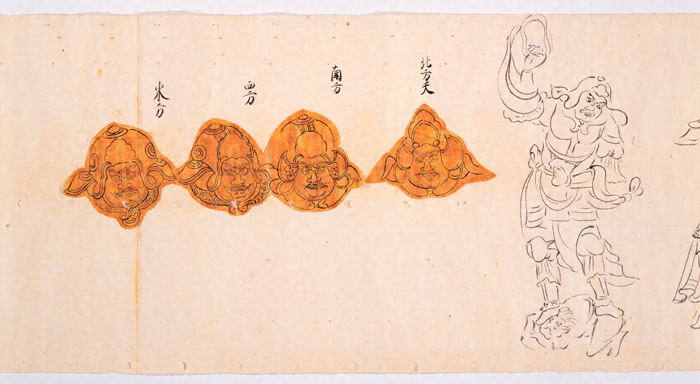 北方天
南方
西方
東方